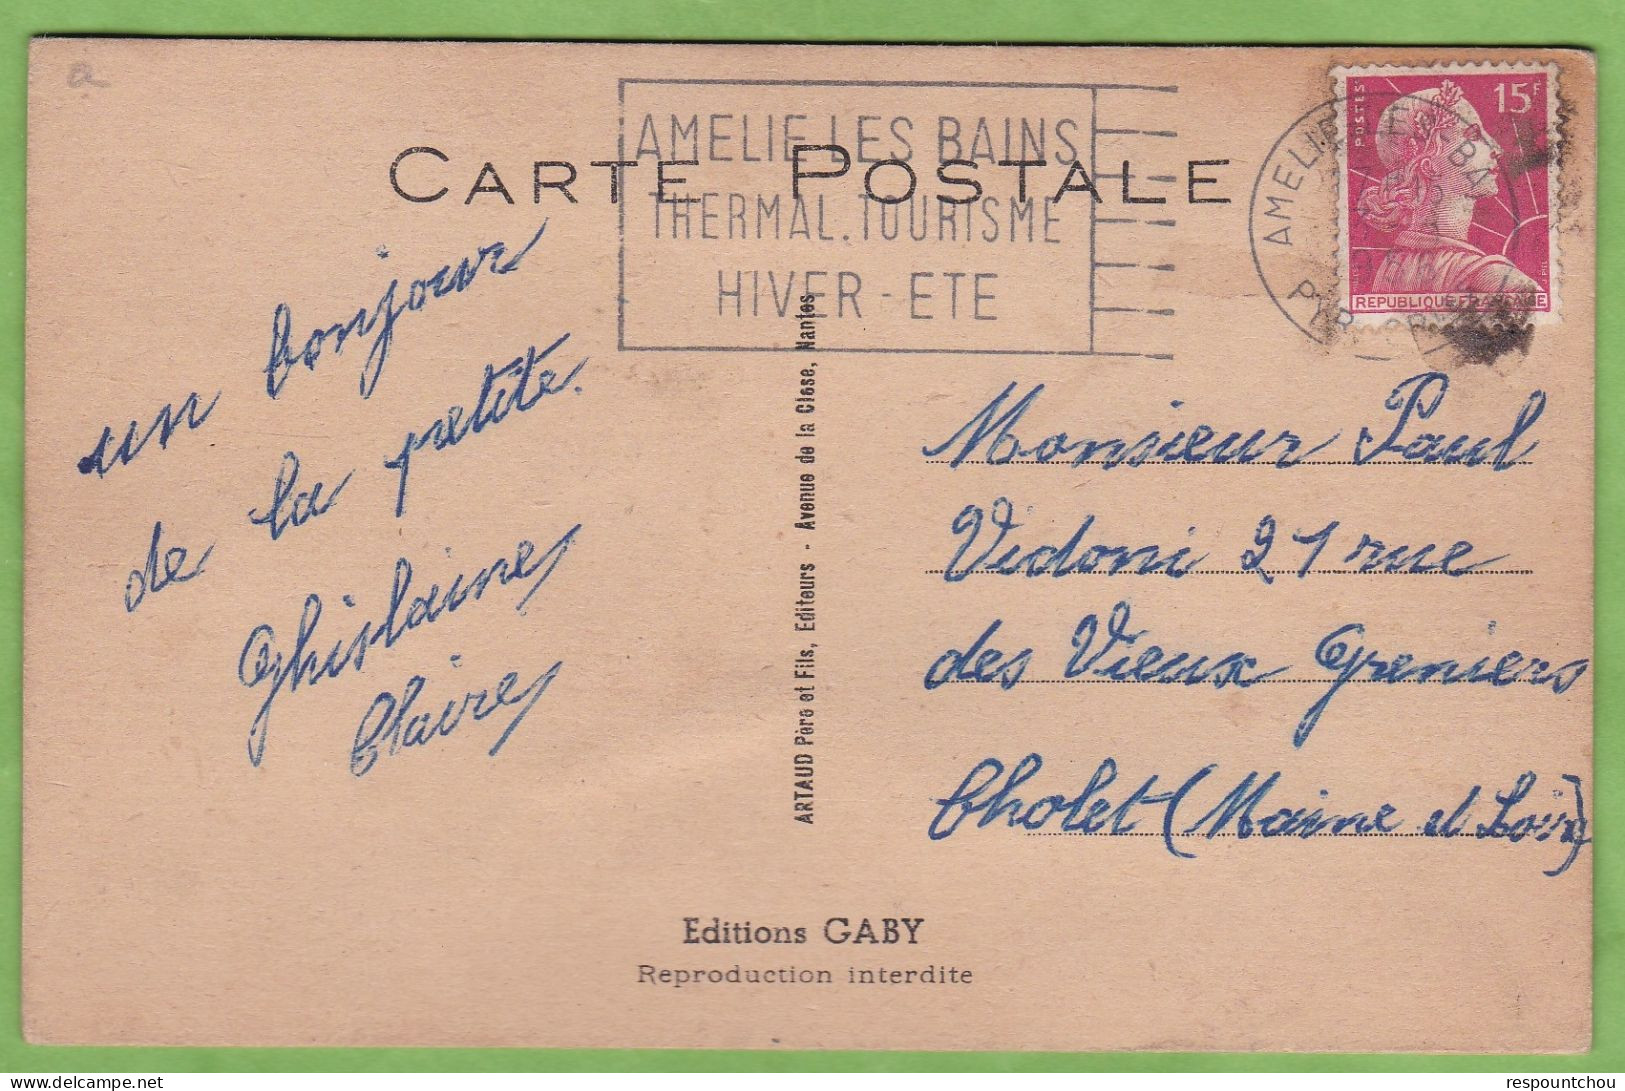 a
AMELIE LES BAINS
THERMAL. TOURISME
HIVER - ETE
CARTE POSTALE
AMELIE
PYR
POSTES
15F
REPUBLIQUE FRANÇAISE
un bonjour
de la petite.
Ghislaine
Claire
ARTAUD Père et Fils, Editeurs - Avenue de la Close, Nantes
Monsieur Paul
Vidoni 21 rue
des Vieux Greniers
Cholet (Maine et Loire)
Editions GABY
Reproduction interdite
respountchou